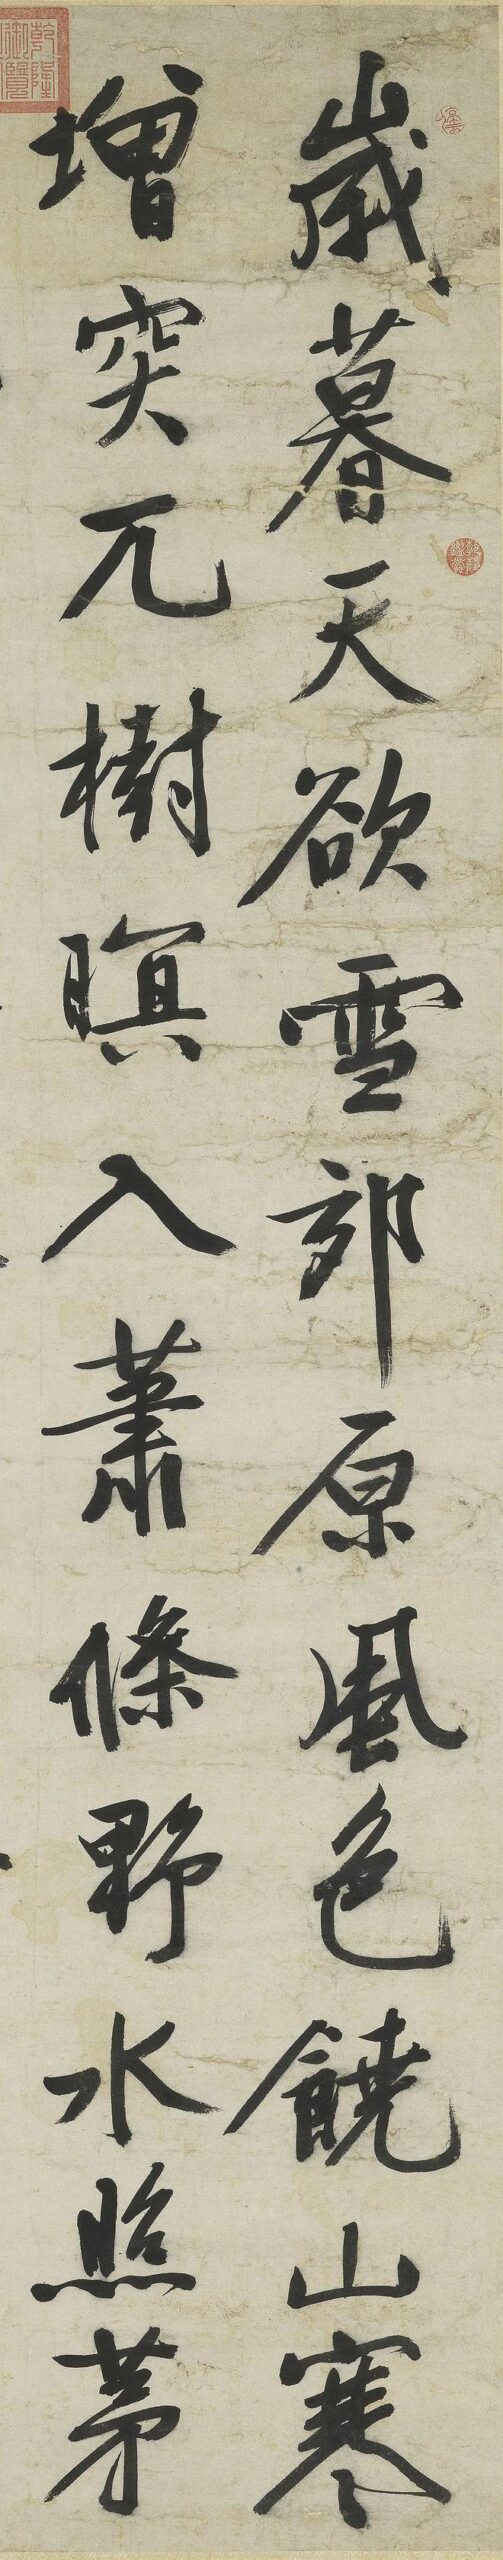 歲暮天欲雪郊原風色饒山寒
增突兀樹暝入蕭條野水照茅
乾隆御覽